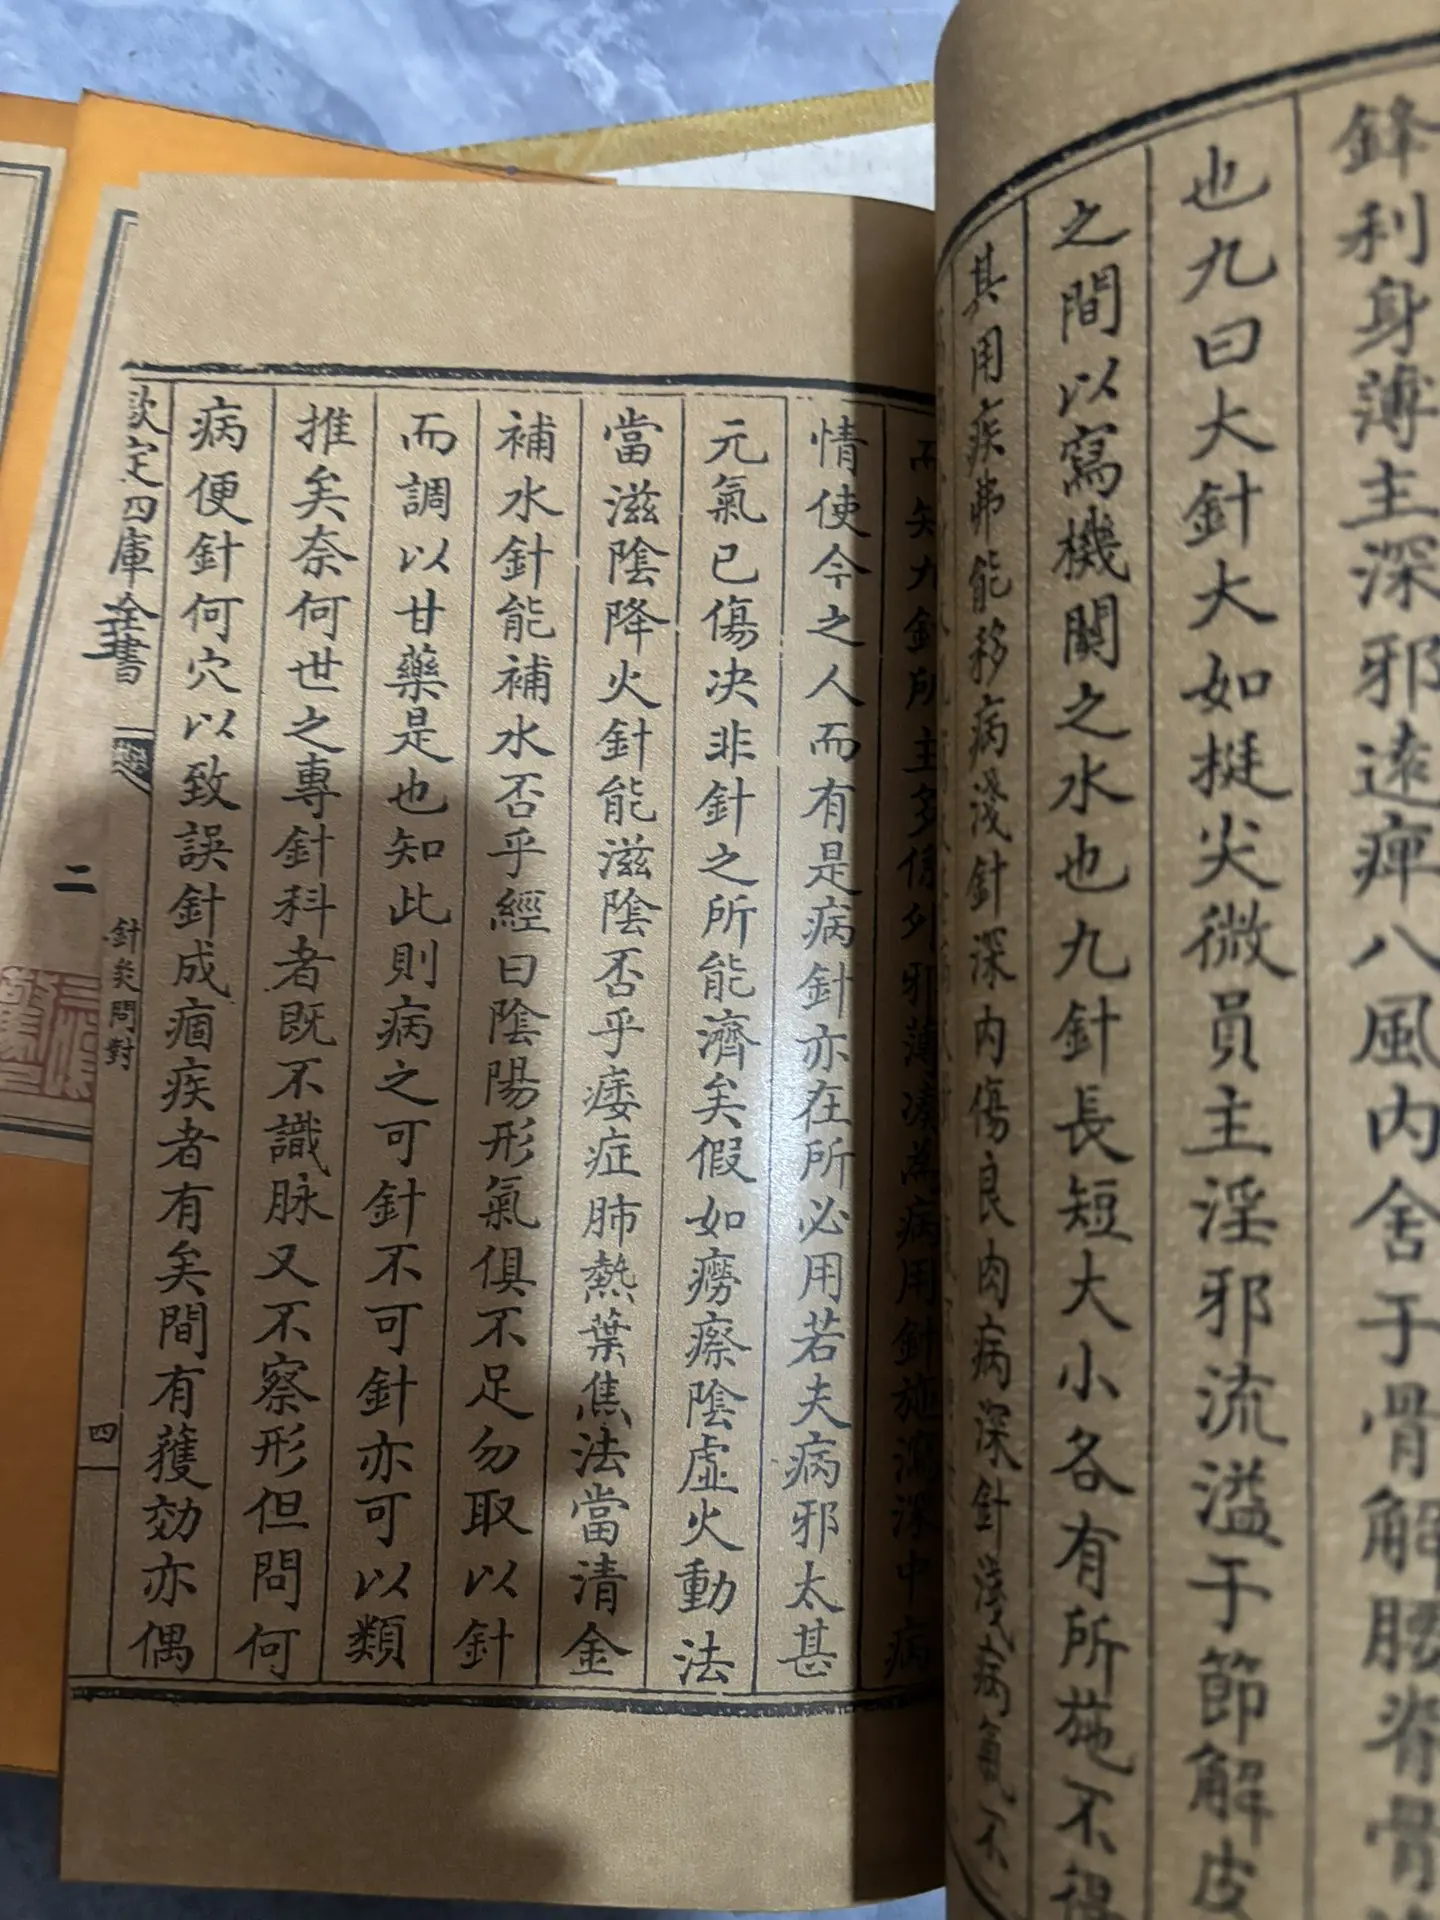 鋒利身薄主深邪遠痺八風內舍于骨解腰脊骨
也九曰大針大如挺尖微員主淫邪流溢于節解皮
之間以寫機關之水也九針長短大小各有所施不得
其用疾弗能移病淺針深內傷良肉病深針淺病氣不
而知九針所主多係外邪薄湊為病用針施瀉深中病
情使今之人而有是病針亦在所必用若夫病邪太甚
元氣已傷決非針之所能濟矣假如癆瘵陰虛火動法
當滋陰降火針能滋陰否乎痿症肺熱葉焦法當清金
補水針能補水否乎經曰陰陽形氣俱不足勿取以針
而調以甘藥是也知此則病之可針不可針亦可以類
推矣奈何世之專針科者既不識脉又不察形但問何
病便針何穴以致誤針成痼疾者有矣間有獲効亦偶
欽定四庫全書
針灸問對
四
二